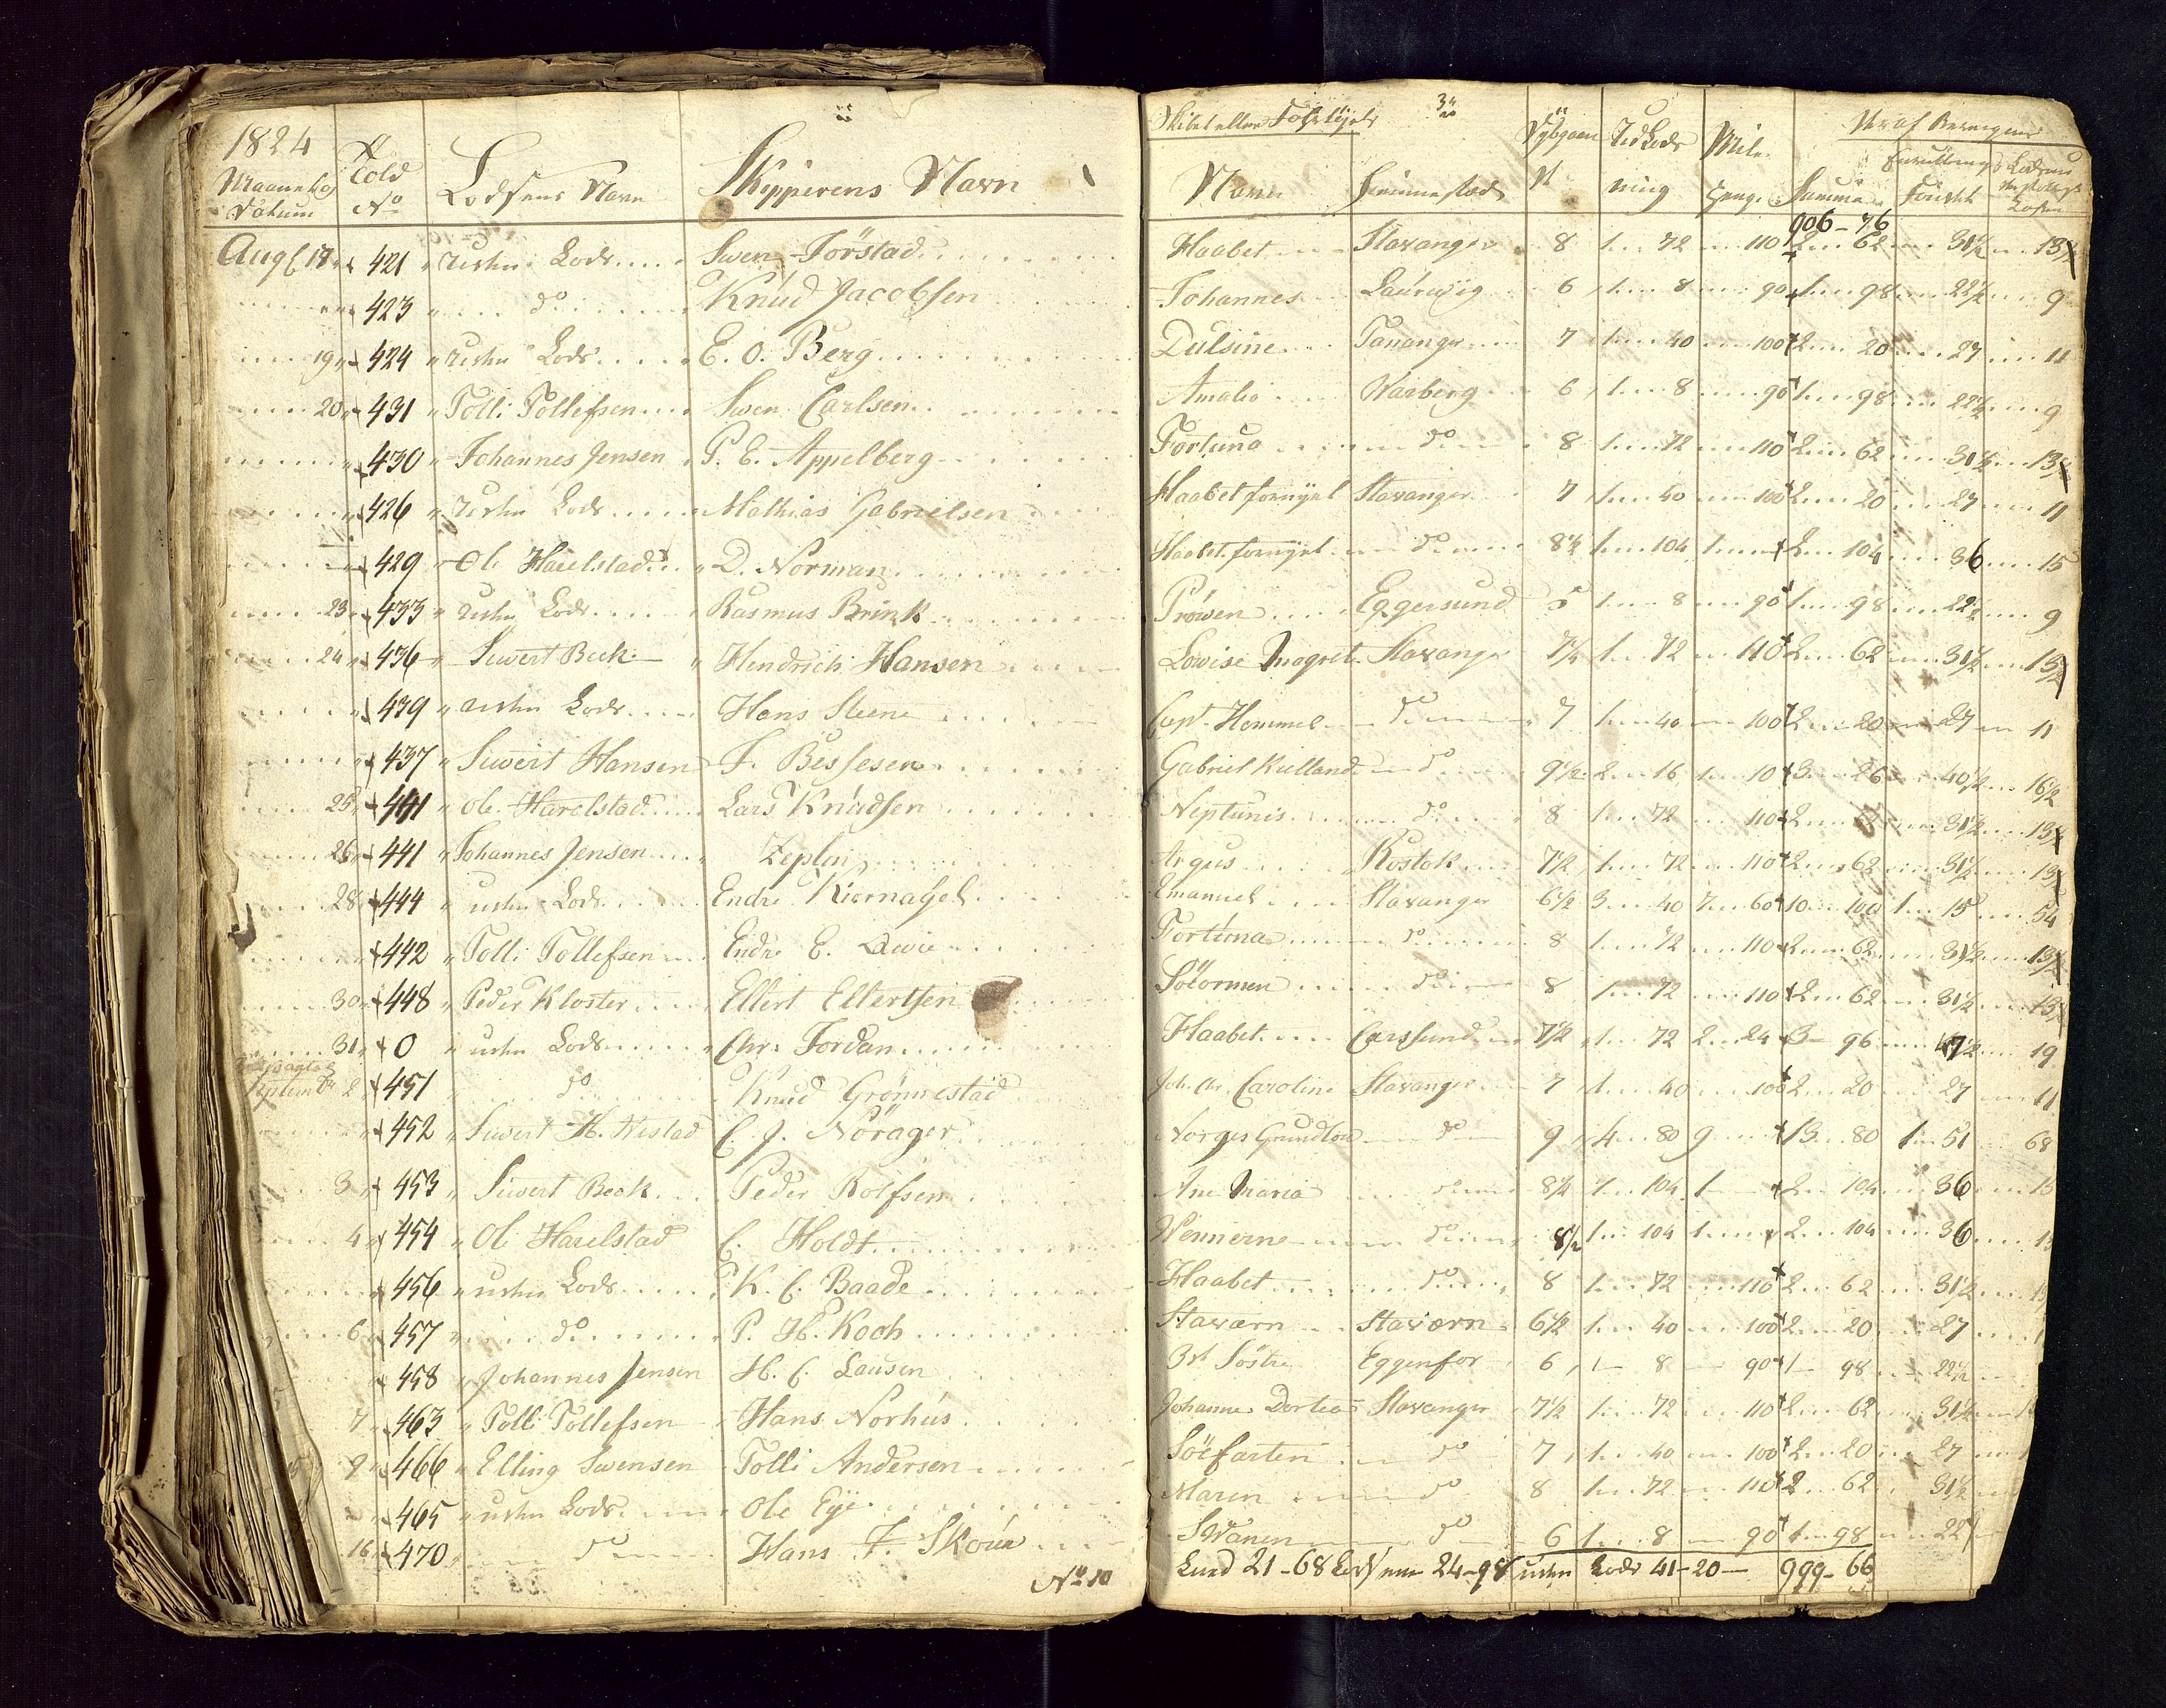 1824
Told
No
Lodsens Navn
Skipperens Navn
Skibet eller
Navn
Summa
906-76
Aug 18 421 Lods Swen Förstad Haabet Stavanger 8 1 72 110 2 62 31½ 13½
423 do Knud Jacobsen Johannes Laurwig 6 1 8 90 1 98 22½ 9
19 424 Lods E. O. Berg Dulsine Tananger 7 1 40 100 2 20 27 11
20 431 Tolli Tollefsen Swen Carlsen Amalia Warberg 6 1 8 90 1 98 22½ 9
430 Johannes Jensen P. E. Appelberg Fortuna do 8 1 72 110 2 62 31½ 13½
426 Lods Mathias Gabrielsen Haabet fornyet Stavanger 7 1 40 100 2 20 27 11
429 Ole Harelstad D. Norman Haabet fornyet do 8½ 1 104 1 2 104 36 15
23 433 Lods Rasmus Brink Prøven Eggersund 5 1 8 90 1 98 22½ 9
24 436 Siwert Beck Hendrich Hansen Lowise Magret Stavanger 7½ 1 72 110 2 62 31½ 13½
439 Lods Hans Steene Capt. Hommel do 7 1 40 100 2 20 27 11
437 Siwert Hansen F. Bessesen Gabriel Kielland do 9½ 2 16 1 10 3 26 40½ 16½
25 441 Ole Harelstad Lars Knudsen Neptunis do 8 1 72 110 2 62 31½ 13½
26 441 Johannes Jensen Zeplin Argus Rostok 7½ 1 72 110 2 62 31½ 13½
28 444 Lods Endre Kiernagel Emanuel Stavanger 6½ 3 40 7 60 10 100 1 15 54
442 Tolli Tollefsen Endre E. Fortuna do 8 1 72 110 2 62 31½ 13½
30 448 Peder Kloster Ellert Ellertsen Søeormen do 8 1 72 110 2 62 31½ 13½
31 0 Lods Chr. Jordan Haabet 7½ 1 72 2 24 3 96 47½ 19
Septembr 2 451 do Knud Grönnestad Joh. Chr. Caroline Stavanger 7 1 40 100 2 20 27 11
452 Siwert H. C. J. Nörager Norges Grundlov do 9 4 80 9 13 80 1 51 68
3 453 Siwert Beck Peder Rolfsen Ane Maria do 8½ 1 104 1 2 104 36 15
4 454 Ole Harelstad C. Holdt Wennerne do 8½ 1 104 1 2 104 36
456 Lods K. C. Baade Haabet do 8 1 72 110 2 62 31½
6 457 do P. H. Koch Staværn Staværn 6½ 1 40 100 2 20 27
458 Johannes Jensen H. C. Lausen Søstre 6 1 8 90 1 98 22½
7 463 Tolli Tollefsen Hans Norhus Johanne Dortea Stavanger 7½ 1 72 110 2 62 31½
9 466 Elling Swensen Tolli Andersen Söefarten do 7 1 40 100 2 20 27
465 Lods Ole Eye Maren do 8 1 72 110 2 62 31½
16 470 do Hans F. Skoue Swanen do 6 1 8 90 1 98 22½
No 10
21-68 24-98 Lods 41-20 999-66